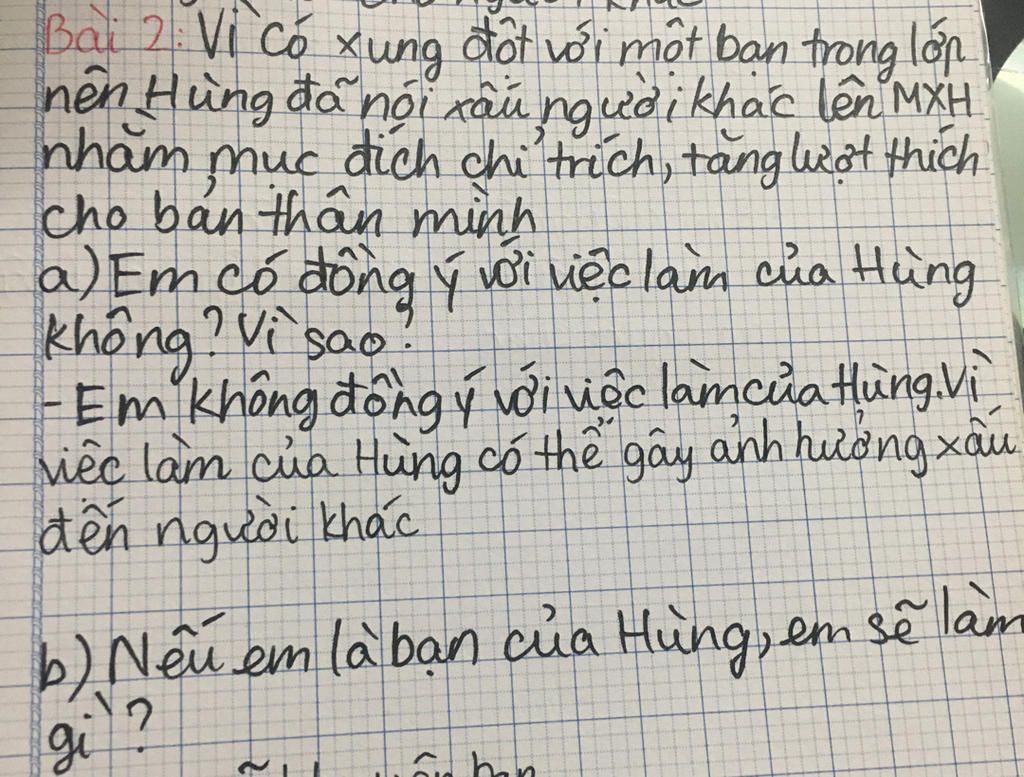 Bài 2: Vì có xung đột với một bạn trong lớp
nên Hùng đã nói xấu người khác lên MXH
nhằm mục đích chỉ trích, tăng lượt thích
cho bản thân mình
a) Em có đồng ý với việc làm của Hùng
không? Vì sao?
- Em không đồng ý với việc làm của Hùng. Vì
việc làm của Hùng có thể gây ảnh hưởng xấu
đến người khác
b) Nếu em là bạn của Hùng, em sẽ làm
gì?